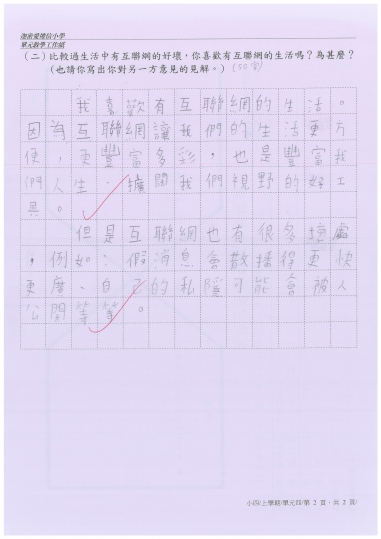 迦密愛禮信小學
單元教學工作紙
(二)比較過生活中有互聯網的好壞,你喜歡有互聯網的生活嗎?為甚麼?
(也請你寫出你對另一方意見的見解。)(50字)
我喜歡有互聯網的生活。
因為互聯網讓我們的生活更方
便,更豐富多彩,也是豐富我
們人生、擴闊我們視野的好工
具。
但是互聯網也有很多壞處
,例如:假消息會散播得更快
更廣、自己的私隱可能會被人
公開等等。
小四/上學期/單元四/第 2 頁,共 2 頁/